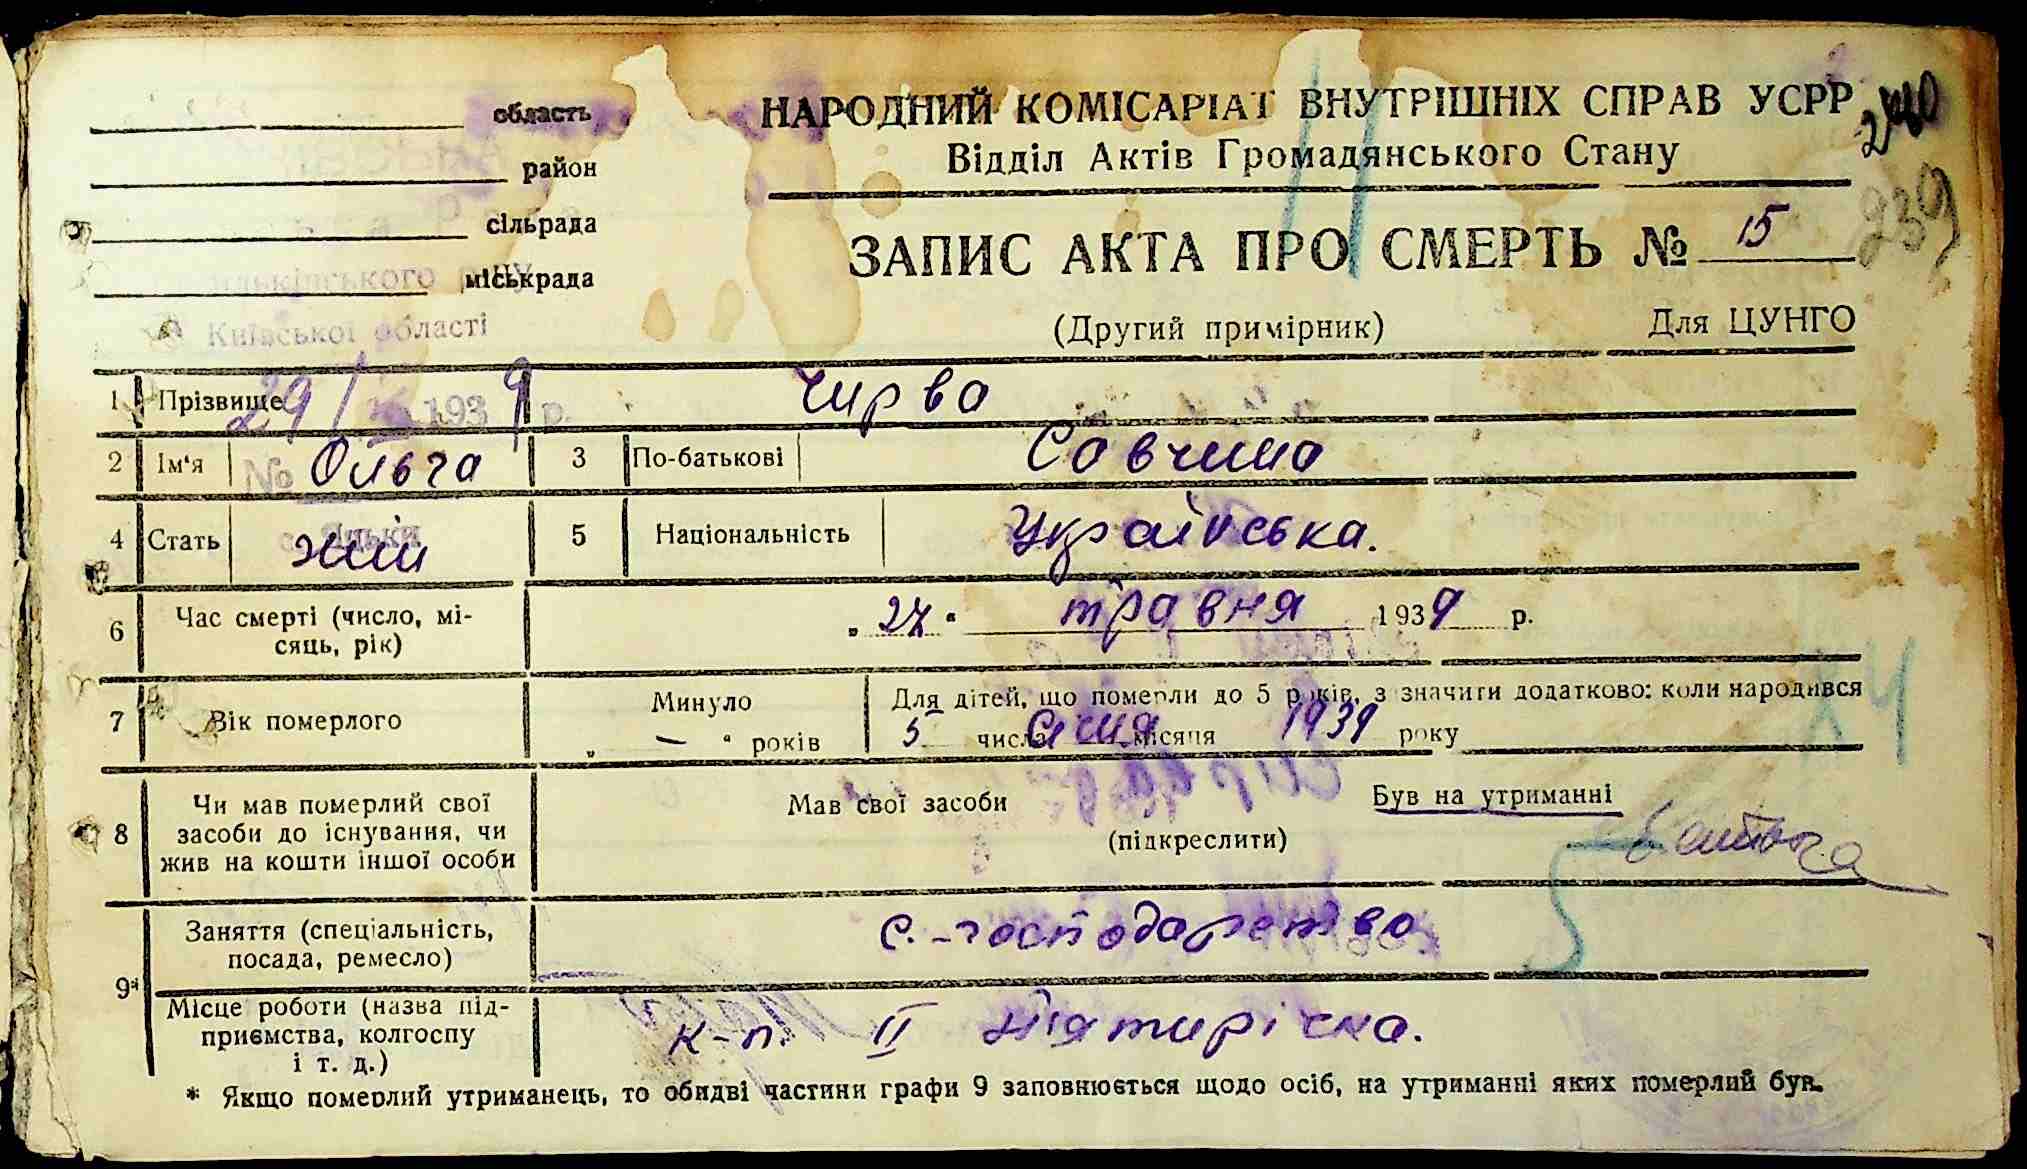 область
район
сільрада
міськрада
Київської області
29/ 1939 р.
№
НАРОДНИЙ КОМІСАРІАТ ВНУТРІШНІХ СПРАВ УСРР
Відділ Актів Громадянського Стану
239
ЗАПИС АКТА ПРО СМЕРТЬ № 15
(Другий примірник) Для ЦУНГО
1 Прізвище Чирва
2 Ім'я Ольга 3 По-батькові Савчина
4 Стать жін 5 Національність Українська.
6 Час смерті (число, мі-
сяць, рік) „27" травня 1939 р.
7 Вік померлого Минуло „ — " років
Для дітей, що померли до 5 років, зазначити додатково: коли народився
5 числа Січня місяця 1939 року
8 Чи мав померлий свої
засоби до існування, чи
жив на кошти іншої особи
Мав свої засоби Був на утриманні
(підкреслити) батька
9* Заняття (спеціальність,
посада, ремесло) с.-господарство
Місце роботи (назва під-
приємства, колгоспу
і т. д.) к-п. II П'ятирічка.
* Якщо померлий утриманець, то обидві частини графи 9 заповнюється щодо осіб, на утриманні яких померлий був.